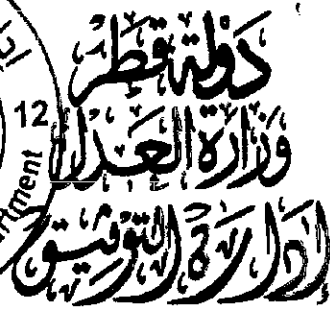 دولة قطر
وزارة العدل
إدارة التوثيق
12